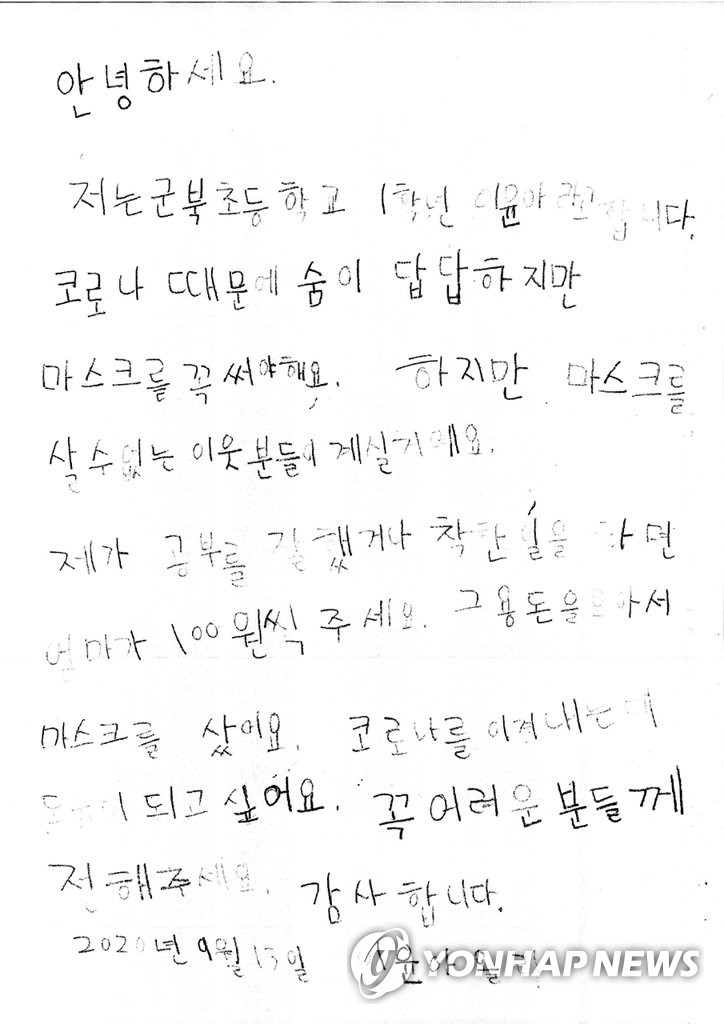 안녕하세요.
저는 군북초등학교 1학년 이윤아 라고 합니다.
코로나 때문에 숨이 답답하지만
마스크를 꼭 써야해요. 하지만 마스크를
살 수 없는 이웃분들이 계실거예요.
제가 공부를 잘했거나 착한일을 하면
엄마가 100원씩 주세요. 그 용돈을 모아서
마스크를 샀어요. 코로나를 이겨내는데
도움이 되고 싶어요. 꼭 어려운 분들께
전해주세요. 감사합니다.
2020년 9월 13일 이윤아 올림
YONHAP NEWS